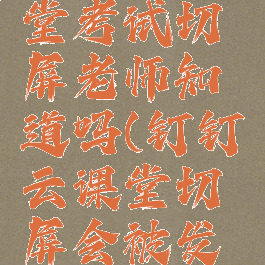 堂考试切
屏老师知
道吗(钉钉
云课堂切
屏会被发